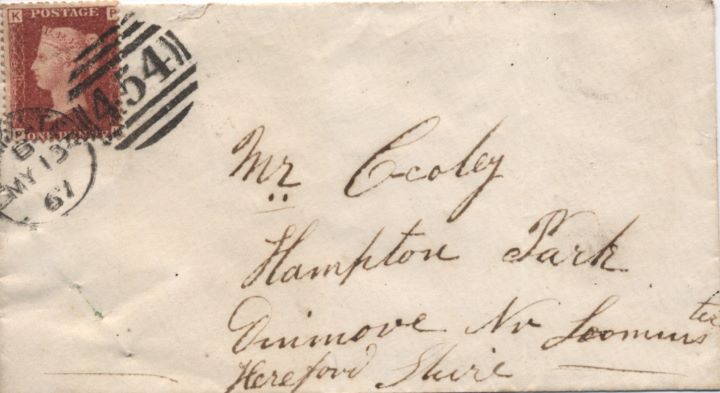 K P
POSTAGE
ONE PENNY
454
B
MY 13
67
Mr Cooley
Hampton Park
Dinmore Nr Leomins
ter
Hereford Shire